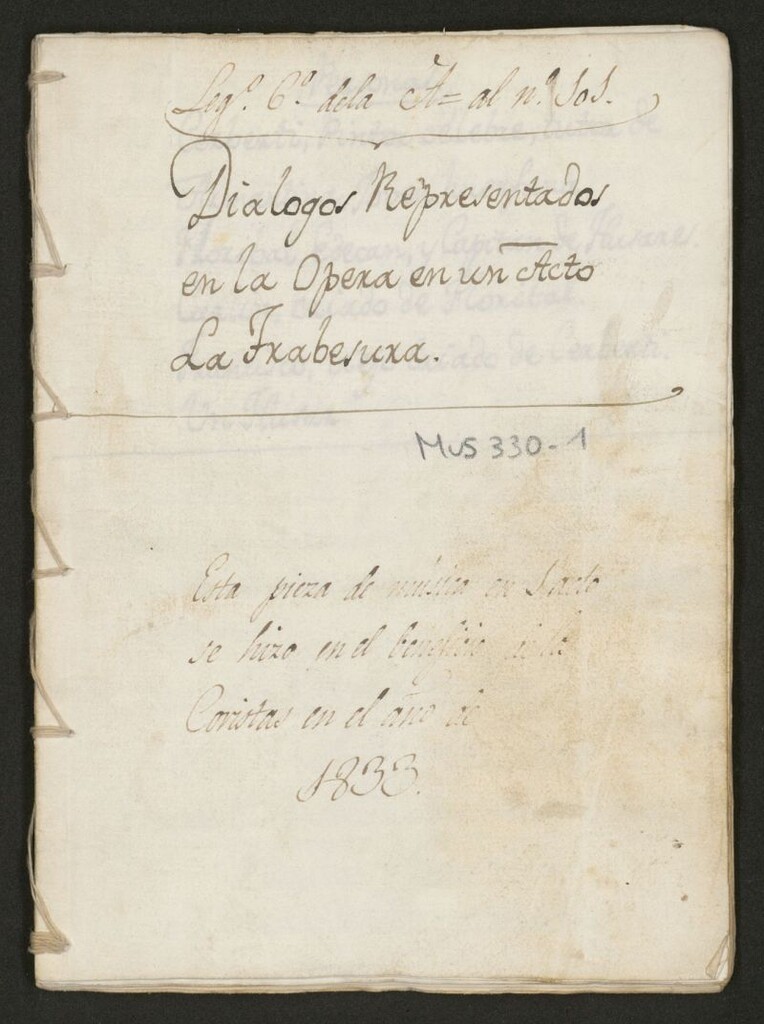 Leg.º 6º dela A= al n.º 505.
Dialogos Representados
en la Opera en un Acto
La Trabesura.
MUS 330-1
Esta pieza de música en 1 acto
se hizo en el beneficio de los
Coristas en el año de
1833.